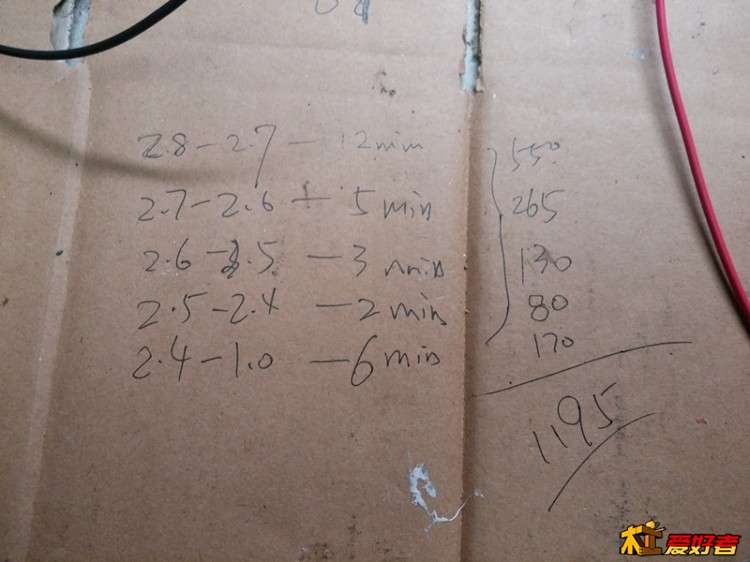 2.8-2.7 - 12min 550
2.7-2.6 - 5 min 265
2.6-2.5 - 3 min 130
2.5-2.4 - 2 min 80
2.4-1.0 - 6 min 170
1195
爱好者